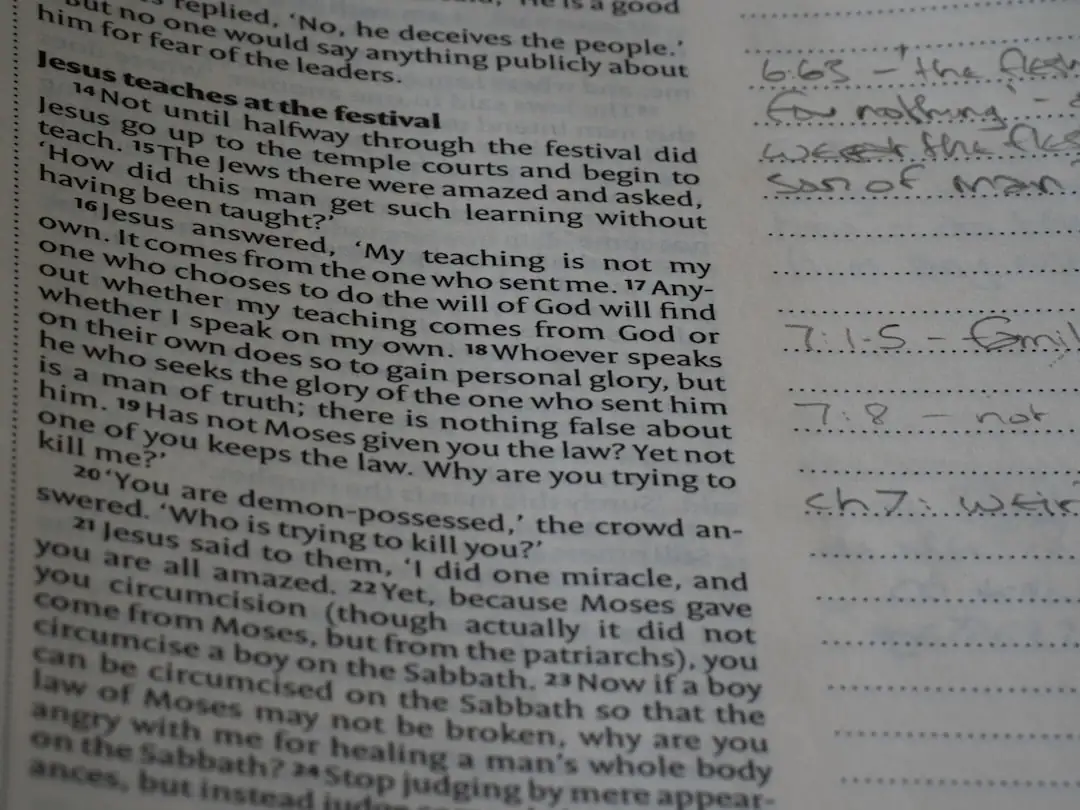 He is a good
replied, ‘No, he deceives the people.’
But no one would say anything publicly about
him for fear of the leaders.
Jesus teaches at the festival
14 Not until halfway through the festival did
Jesus go up to the temple courts and begin to
teach. 15 The Jews there were amazed and asked,
‘How did this man get such learning without
having been taught?’
16 Jesus answered, ‘My teaching is not my
own. It comes from the one who sent me. 17 Any-
one who chooses to do the will of God will find
out whether my teaching comes from God or
whether I speak on my own. 18 Whoever speaks
on their own does so to gain personal glory, but
he who seeks the glory of the one who sent him
is a man of truth; there is nothing false about
him. 19 Has not Moses given you the law? Yet not
one of you keeps the law. Why are you trying to
kill me?’
20 ‘You are demon-possessed,’ the crowd an-
swered. ‘Who is trying to kill you?’
21 Jesus said to them, ‘I did one miracle, and
you are all amazed. 22 Yet, because Moses gave
you circumcision (though actually it did not
come from Moses, but from the patriarchs), you
circumcise a boy on the Sabbath. 23 Now if a boy
can be circumcised on the Sabbath so that the
law of Moses may not be broken, why are you
angry with me for healing a man’s whole body
on the Sabbath? 24 Stop judging by mere appear-
ances, but instead judge
6:63 – 'the flesh
for nothing' –
the
son of man
7:1-5 – famil
7:8 – not
ch 7: weir